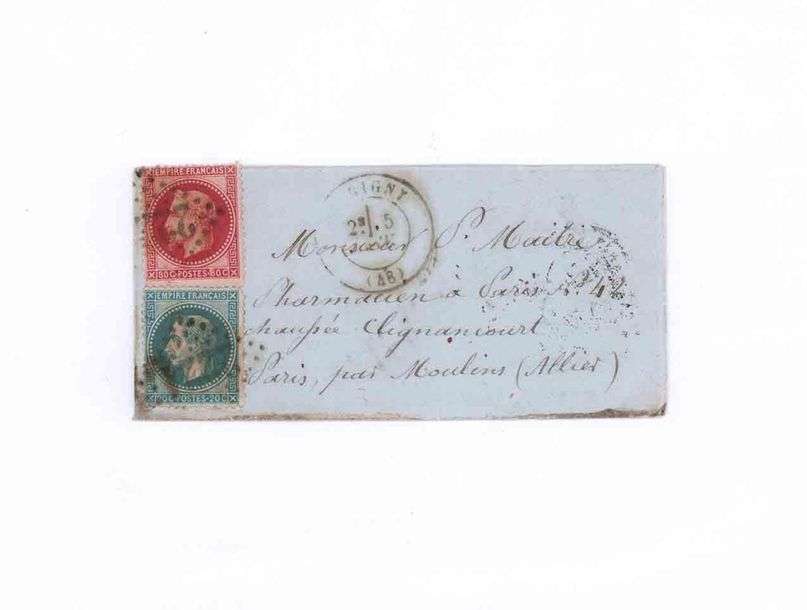 EMPIRE FRANÇAIS
80C POSTES 80C
EMPIRE FRANÇAIS
20C POSTES 20C
IGNY
2E 5
(48)
Monsieur P. Maitre
Pharmacien à Paris 42
chaussée Clignancourt
Paris, par Moulins (Allier)